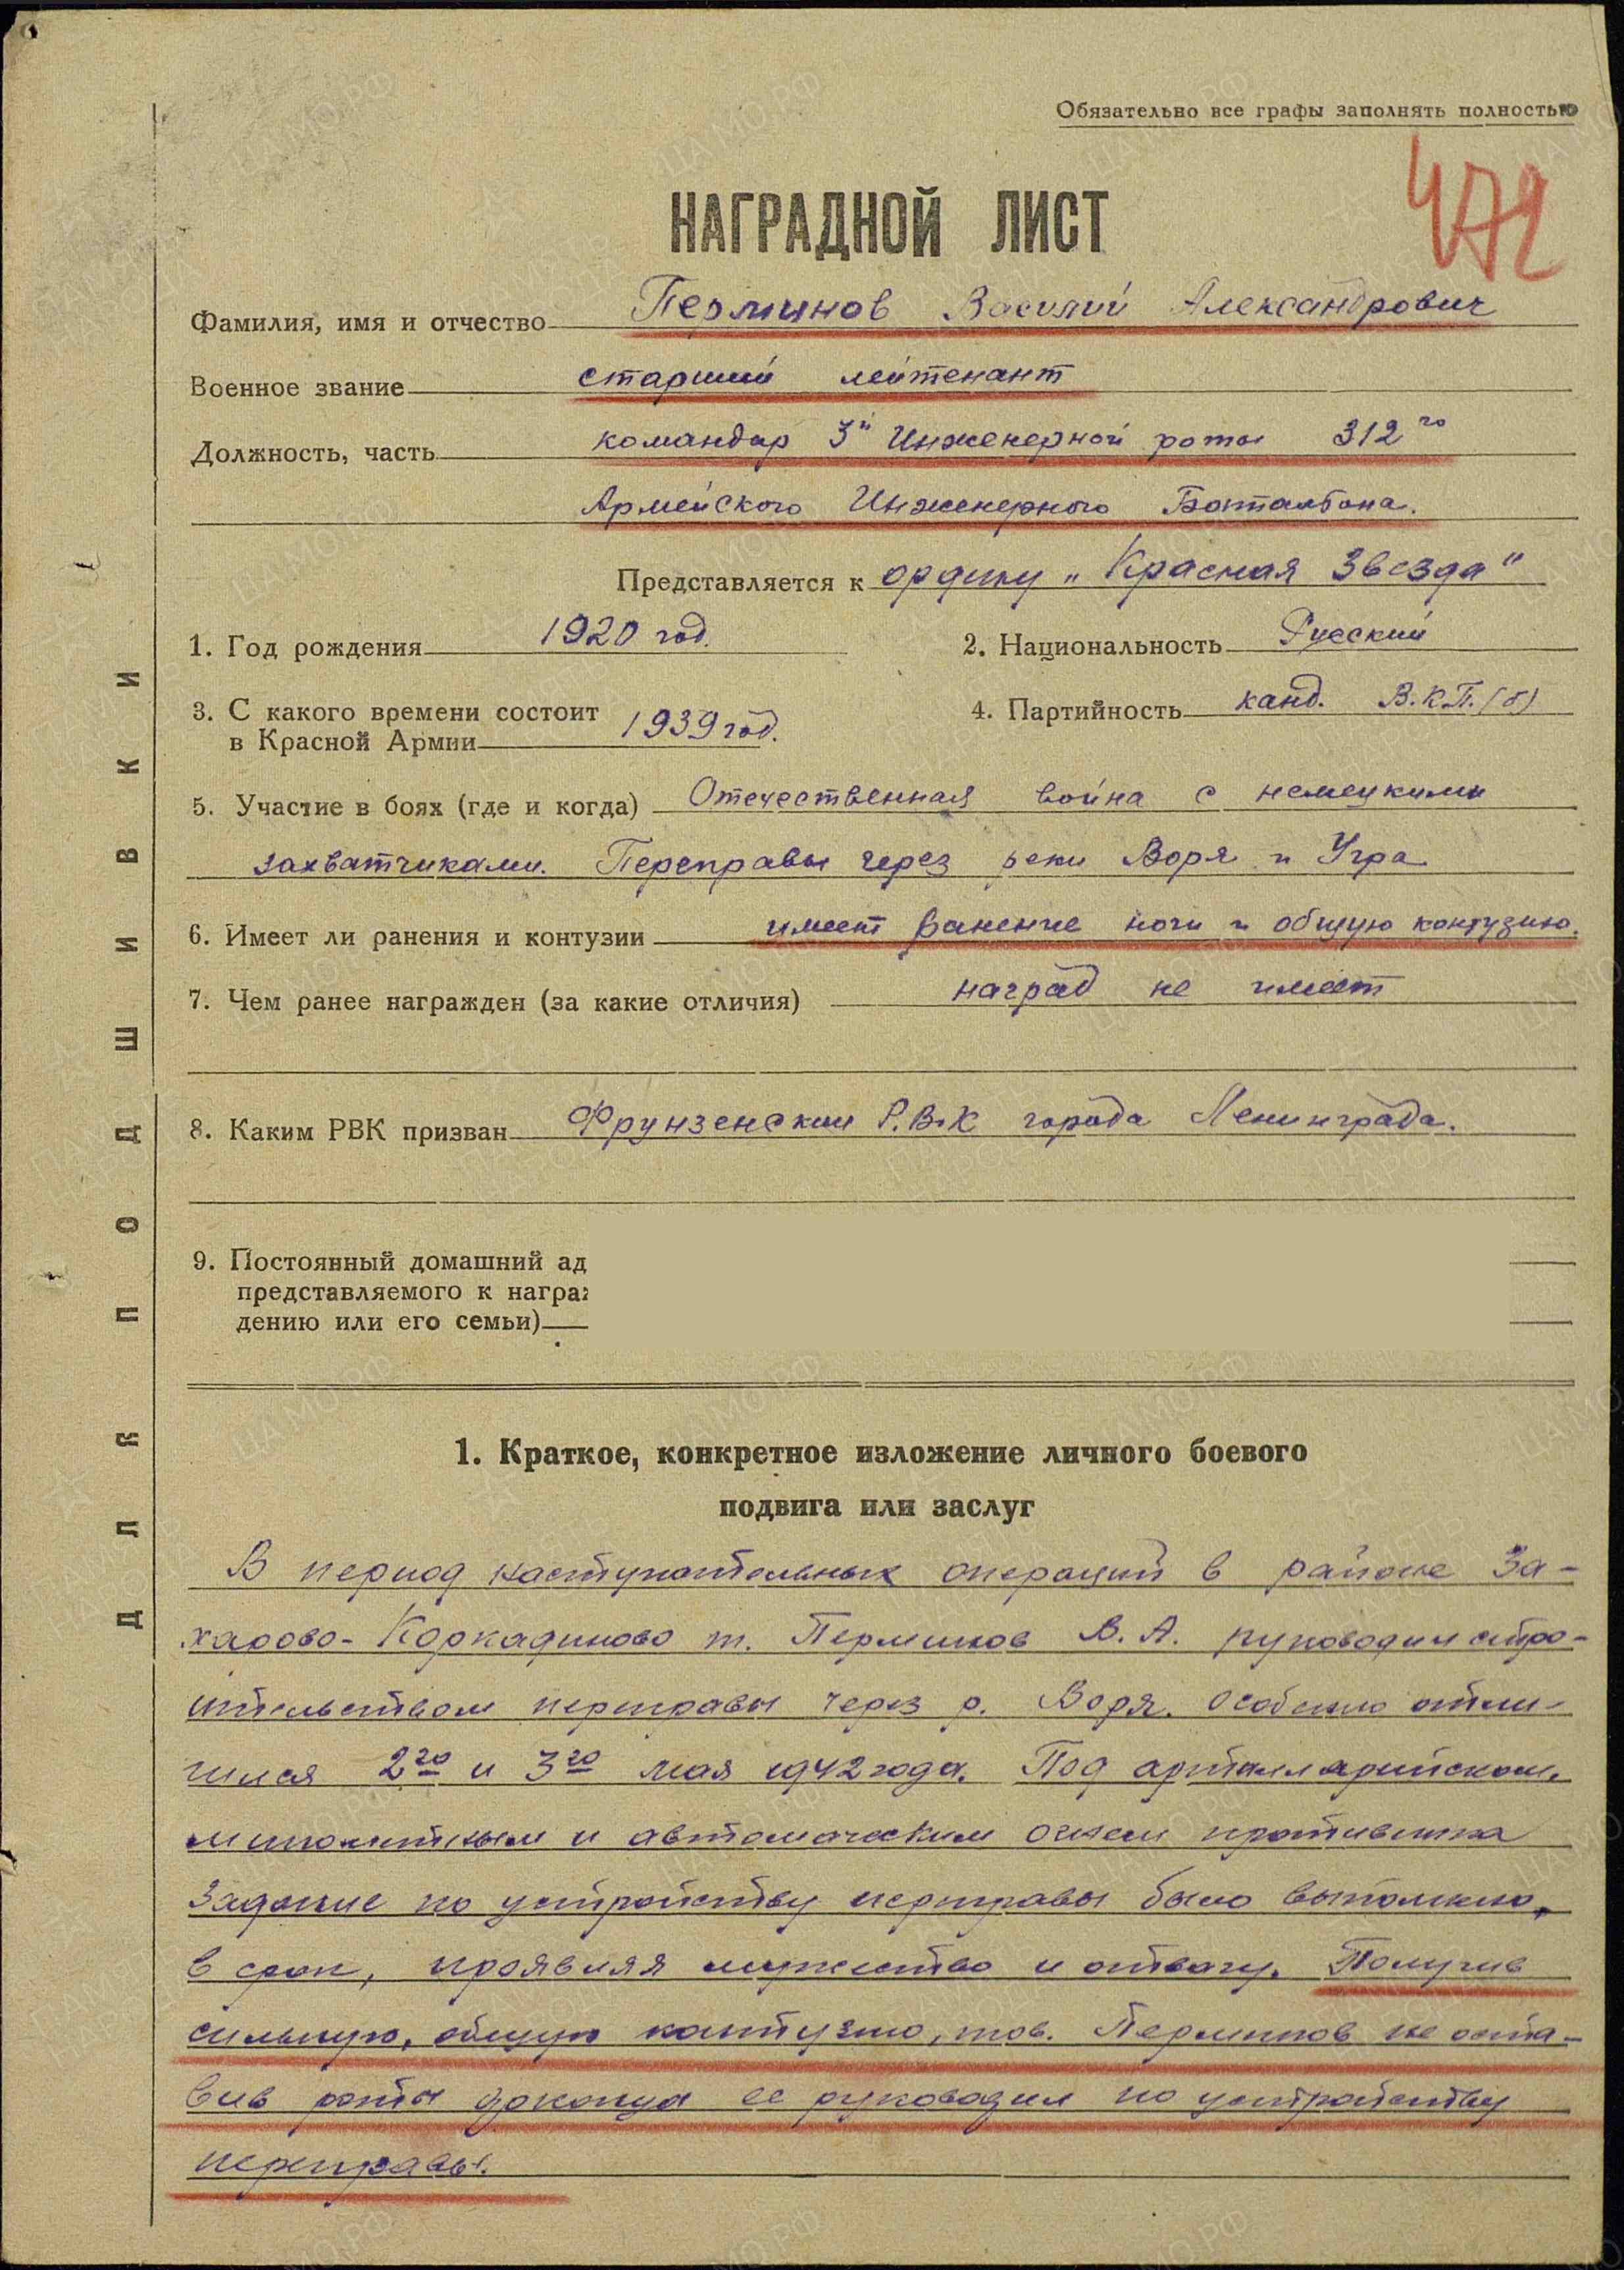 Обязательно все графы заполнять полностью
472
НАГРАДНОЙ ЛИСТ
Фамилия, имя и отчество Перминов Василий Александрович
Военное звание старший лейтенант
Должность, часть командир 3й Инженерной роты 312го
Армейского Инженерного Баттальона.
Представляется к ордину „Красная Звезда"
1. Год рождения 1920 год.
2. Национальность Русский
3. С какого времени состоит
в Красной Армии 1939 год.
4. Партийность канд. В.К.П.(б)
5. Участие в боях (где и когда) Отечественная война с немецкими
захватчиками. Переправы через реки Воря и Угра
6. Имеет ли ранения и контузии имеет ранение ноги и общую контузию.
7. Чем ранее награжден (за какие отличия) наград не имеет
8. Каким РВК призван Фрунзенским Р.В.К города Ленинграда.
9. Постоянный домашний ад
представляемого к награж
дению или его семьи)
1. Краткое, конкретное изложение личного боевого
подвига или заслуг
В период наступательных операций в районе За-
харово-Коркадиново т. Перминов В. А. руководил стро-
ительством переправы через р. Воря. Особенно отли-
чился 2го и 3го мая 1942 года. Под артиллярийском,
минометным и автомаческим огнем противника
Задание по устройству переправы было выполнено,
в срок, проявляя мужество и отвагу. Получив
сильную, общую контузию, тов. Перминов не оста-
вив роты доконца ее руководил по устройству
переправы.
ДЛЯ ПОДШИВКИ